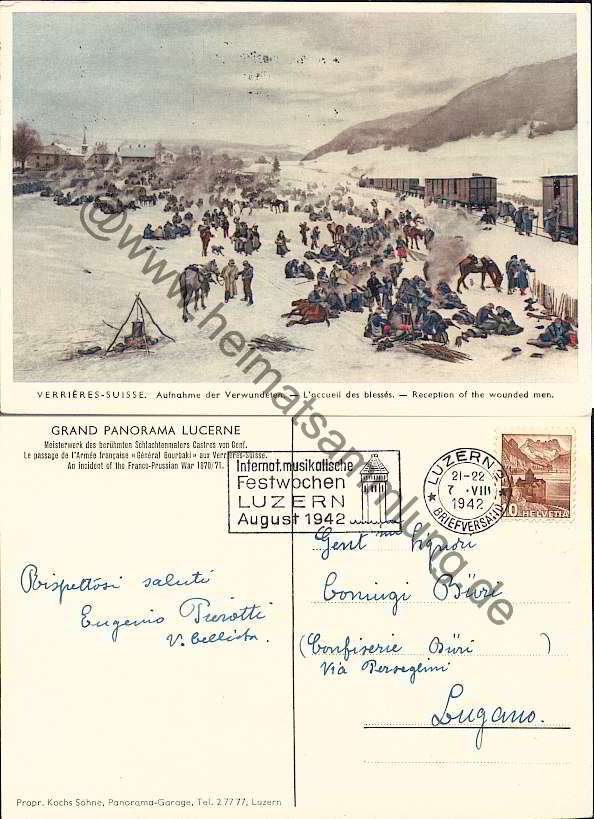 VERRIÈRES-SUISSE. Aufnahme der Verwundeten. — L'accueil des blessés. — Reception of the wounded men.
GRAND PANORAMA LUCERNE
Meisterwerk des berühmten Schlachtenmalers Castres von Genf.
Le passage de l'Armée française «Général Bourbaki» aux Verrières-Suisse.
An incident of the Franco-Prussian War 1870/71.
Internat. musikalische
Festwochen
LUZERN
August 1942
LUZERN 2
21-22
7. VIII
1942
BRIEFVERSAND
10 HELVETIA
Rispettosi saluti
Eugenio Pierotti
V. Cellista.
Gent mi Signori
Coniugi Büri
(Confiserie Büri )
Via
Lugano.
Propr. Kochs Söhne, Panorama-Garage, Tel. 2 77 77, Luzern
@www.heimatsammlung.de